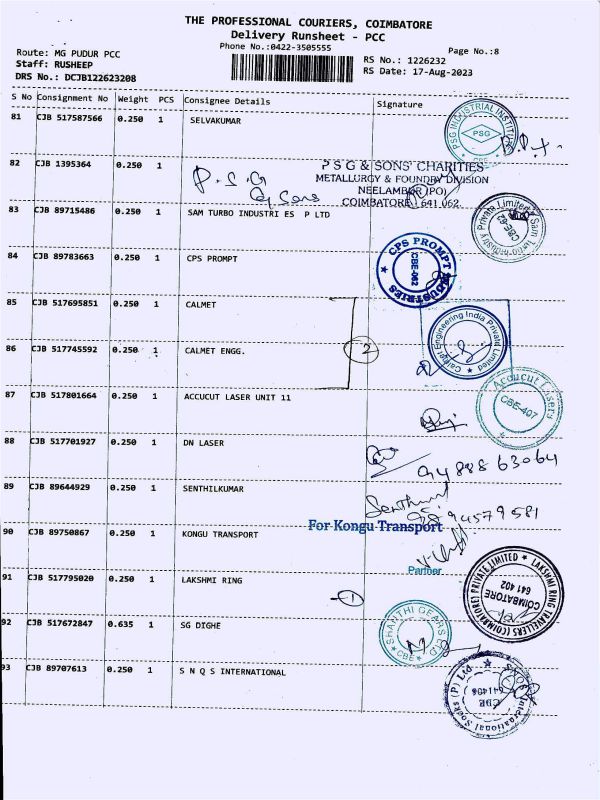 THE PROFESSIONAL COURIERS, COIMBATORE
Delivery Runsheet - PCC
Phone No.:0422-3505555
Page No.:8
Route: MG PUDUR PCC
Staff: RUSHEEP
DRS No.: DCJB122623208
RS No.: 1226232
RS Date: 17-Aug-2023
S No Consignment No Weight PCS Consignee Details Signature
81 CJB 517587566 0.250 1 SELVAKUMAR
PSG INDUSTRIAL INSTITUTE
PSG
CBE
82 CJB 1395364 0.250 1
P.S.G
& Sons
P S G & SONS' CHARITIES
METALLURGY & FOUNDRY DIVISION
NEELAMBUR (PO)
COIMBATORE 641 062
83 CJB 89715486 0.250 1 SAM TURBO INDUSTRI ES P LTD
Sam Turbo Industry Private Limited
CBE-62
84 CJB 89783663 0.250 1 CPS PROMPT
CPS PROMPT INDUSTRIES
CBE-062
85 CJB 517695851 0.250 1 CALMET
86 CJB 517745592 0.250 1 CALMET ENGG.
2
Calmet Engineering India Private Limited
87 CJB 517801664 0.250 1 ACCUCUT LASER UNIT 11
Accucut Lasers
CBE-407
88 CJB 517701927 0.250 1 DN LASER
94888 63064
89 CJB 89644929 0.250 1 SENTHILKUMAR
Senthil
90 CJB 89750867 0.250 1 KONGU TRANSPORT
For Kongu Transport
Partner
91 CJB 517795020 0.250 1 LAKSHMI RING
1
LAKSHMI RING TRAVELLERS (COIMBATORE) PRIVATE LIMITED
COIMBATORE
641 402
92 CJB 517672847 0.635 1 SG DIGHE
SHANTHI GEARS LTD
CBE
93 CJB 89707613 0.250 1 S N Q S INTERNATIONAL
SNQS International Socks (P) Ltd.
CBE